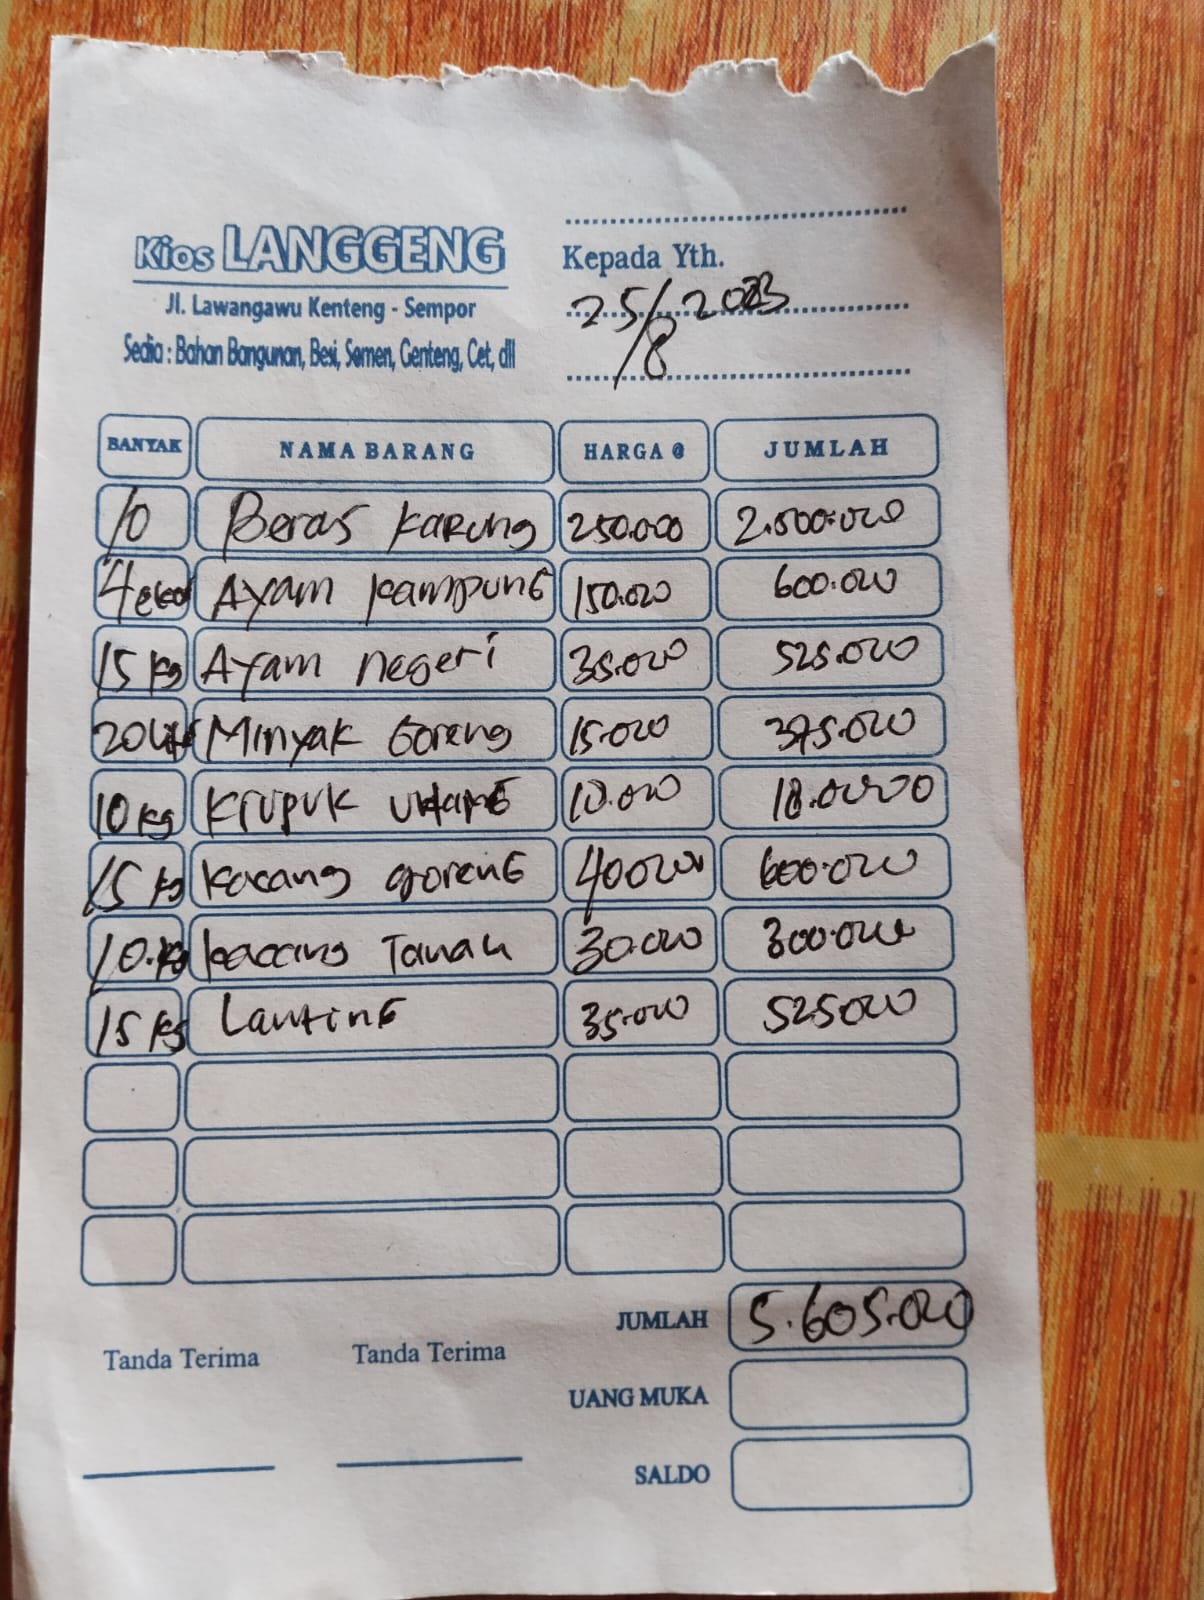 Kios LANGGENG
Jl. Lawangawu Kenteng - Sempor
Sedia : Bahan Bangunan, Besi, Semen, Genteng, Cet, dll
Kepada Yth.
25/8 2023
BANYAK NAMA BARANG HARGA @ JUMLAH
10 Beras Karung 250.000 2.500.000
4 ekor Ayam Kampung 150.000 600.000
15 kg Ayam negeri 35.000 525.000
20 Minyak Goreng 15.000 375.000
10 kg Krupuk 18.0000
15 kg Kacang goreng 40000 600.000
10.kg kacang Tanah 30.000 300.000
15 kg Lanting 35.000 525000
JUMLAH 5.605.000
Tanda Terima Tanda Terima
UANG MUKA
SALDO